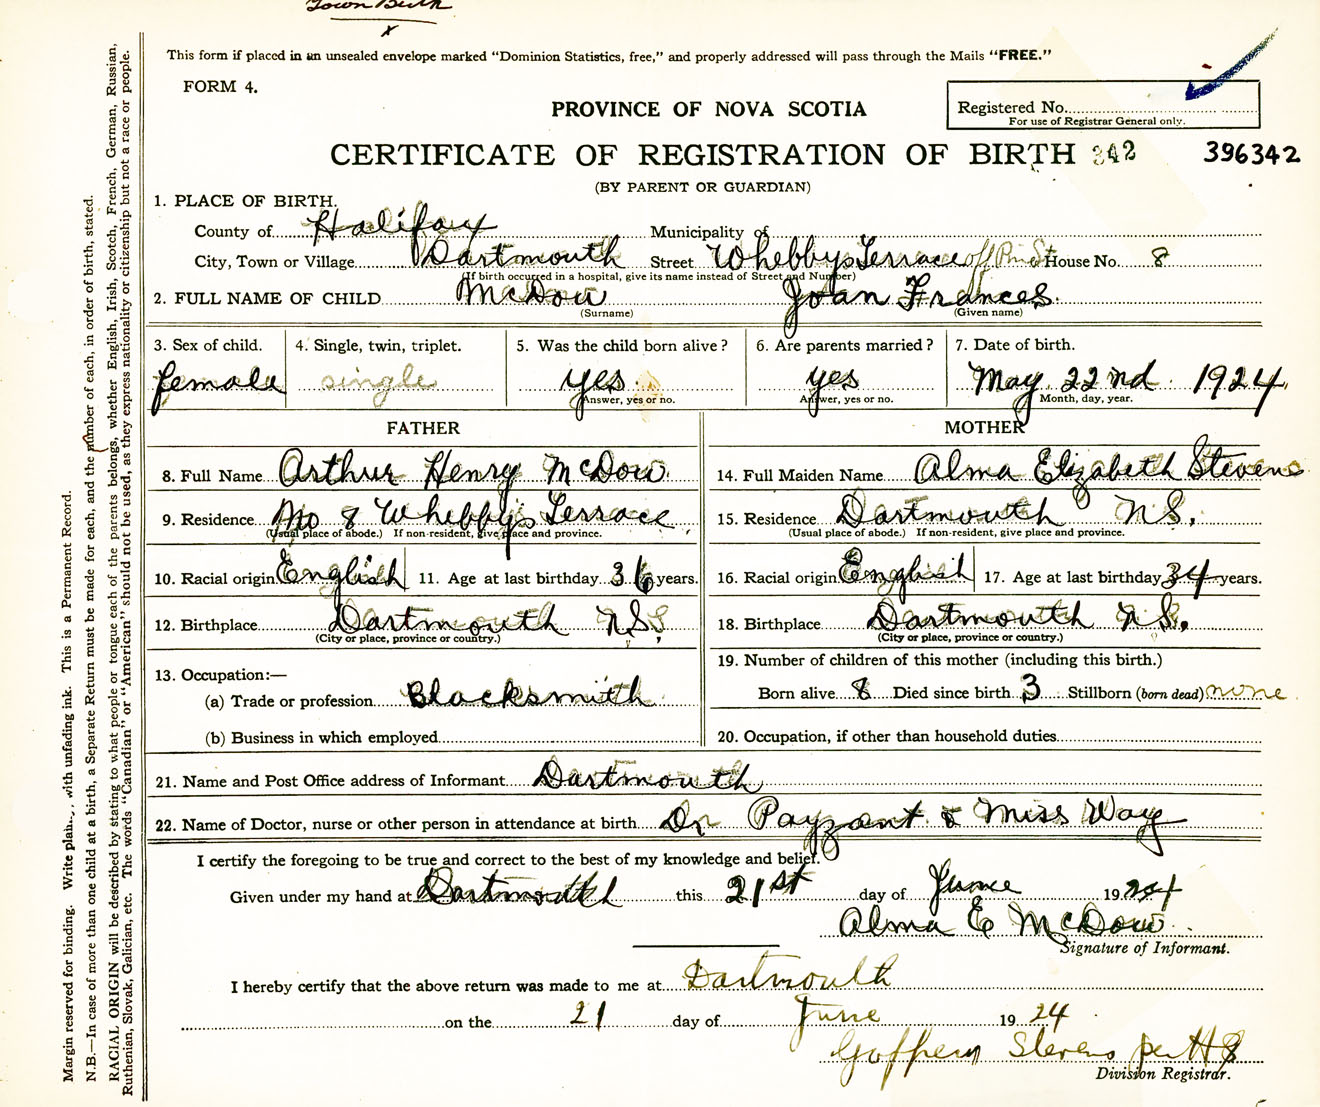 Town Birth
x
This form if placed in an unsealed envelope marked "Dominion Statistics, free," and properly addressed will pass through the Mails "FREE."
FORM 4.
PROVINCE OF NOVA SCOTIA
Registered No.
For use of Registrar General only.
CERTIFICATE OF REGISTRATION OF BIRTH 342 396342
(BY PARENT OR GUARDIAN)
1. PLACE OF BIRTH.
County of Halifax Municipality of
City, Town or Village Dartmouth Street Whebbys Terrace off Pine St House No. 8
(If birth occurred in a hospital, give its name instead of Street and Number)
2. FULL NAME OF CHILD McDow Joan Frances.
(Surname) (Given name)
3. Sex of child. 4. Single, twin, triplet. 5. Was the child born alive? 6. Are parents married? 7. Date of birth.
female single yes. yes May 22nd 1924
Answer, yes or no. Answer, yes or no. Month, day, year.
FATHER MOTHER
8. Full Name Arthur Henry McDow 14. Full Maiden Name Alma Elizabeth Stevens
9. Residence No 8 Whebbys Terrace 15. Residence Dartmouth N.S.
(Usual place of abode.) If non-resident, give place and province. (Usual place of abode.) If non-resident, give place and province.
10. Racial origin English 11. Age at last birthday 36 years. 16. Racial origin English 17. Age at last birthday 34 years.
12. Birthplace Dartmouth N.S. 18. Birthplace Dartmouth N.S.
(City or place, province or country.) (City or place, province or country.)
13. Occupation:— 19. Number of children of this mother (including this birth.)
(a) Trade or profession Blacksmith Born alive 8 Died since birth 3 Stillborn (born dead) none
(b) Business in which employed 20. Occupation, if other than household duties
21. Name and Post Office address of Informant Dartmouth
22. Name of Doctor, nurse or other person in attendance at birth Dr Payzant & Miss Way
I certify the foregoing to be true and correct to the best of my knowledge and belief.
Given under my hand at Dartmouth this 21st day of June 1924
Alma E McDow
Signature of Informant.
I hereby certify that the above return was made to me at Dartmouth
on the 21 day of June 1924
Stevens per
Division Registrar.
Margin reserved for binding. Write plainly, with unfading ink. This is a Permanent Record.
N.B.—In case of more than one child at a birth, a Separate Return must be made for each, and the number of each, in order of birth, stated.
RACIAL ORIGIN will be described by stating to what people or tongue each of the parents belongs, whether English, Irish, Scotch, French, German, Russian,
Ruthenian, Slovak, Galician, etc. The words "Canadian" or "American" should not be used, as they express nationality or citizenship but not a race or people.